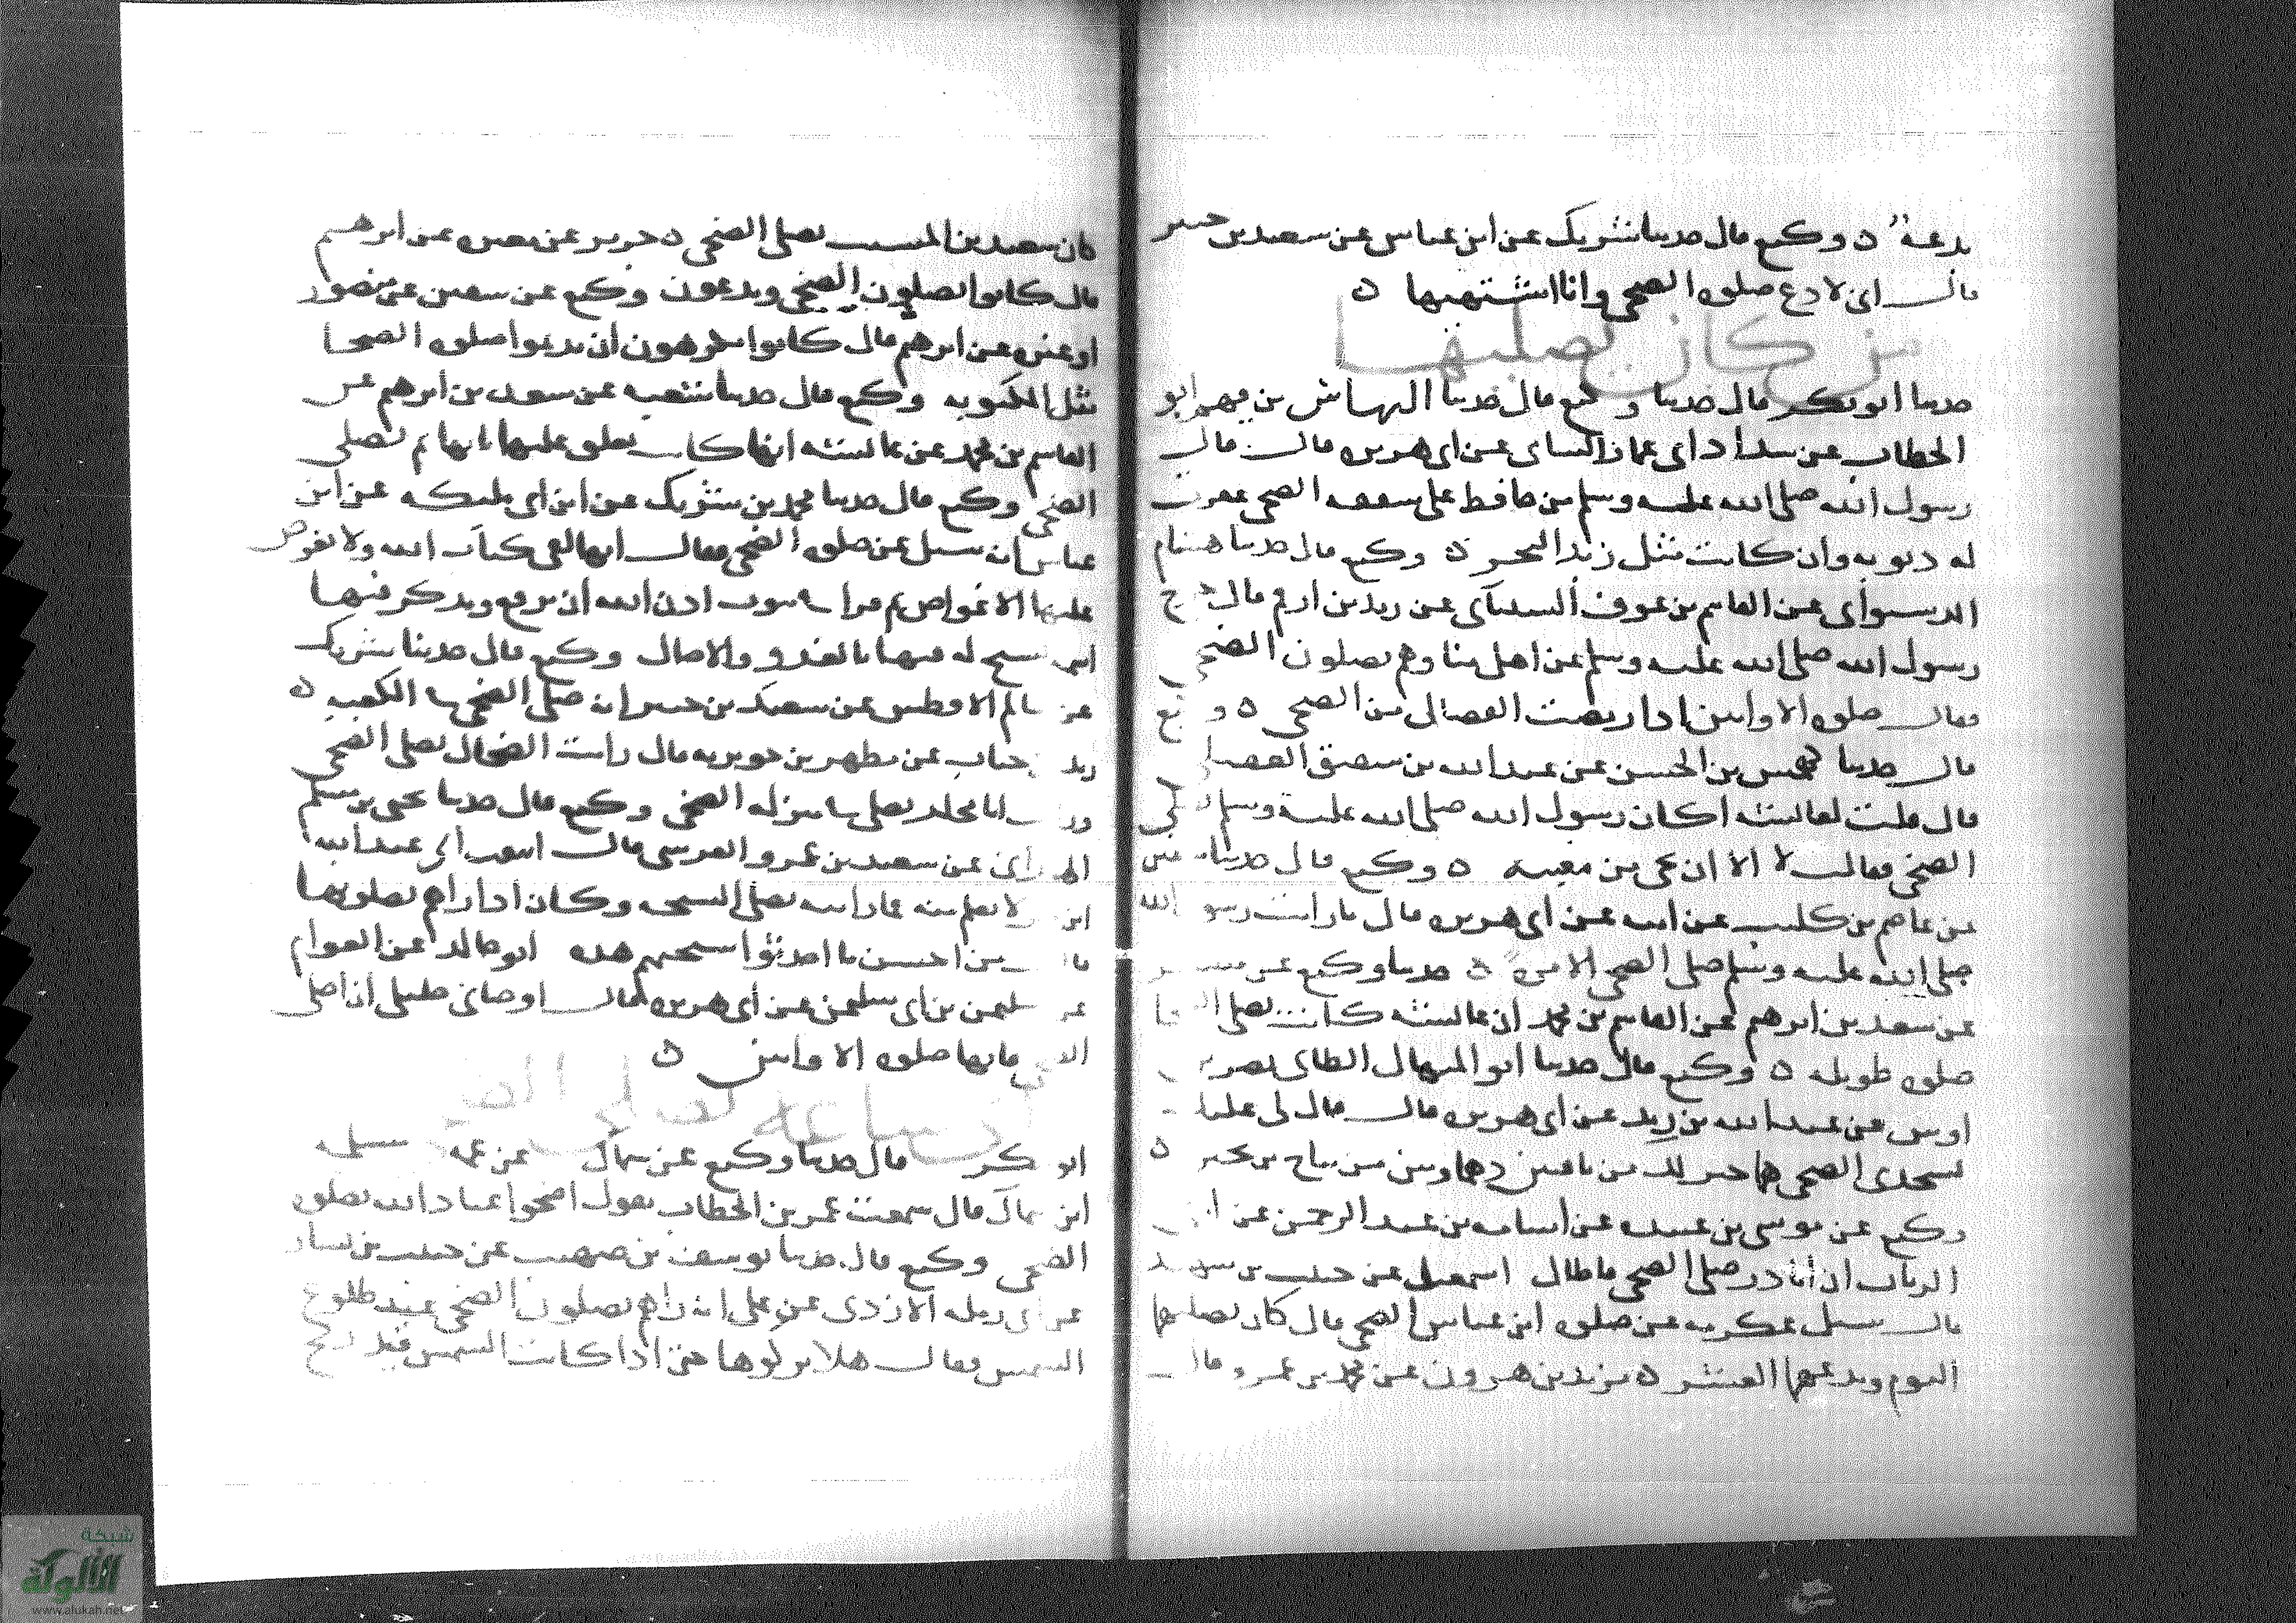 بدعة ه وكيع قال حدثنا شريك عن ابن عباس عن سعيد بن جبير
قال انى لادع صلوه الضحى وانا اشتهيها ه
من كان يصليها
حدثنا ابو بكر قال حدثنا وكيع قال حدثنا النهاس بن قهم ابو
الخطاب عن شداد ابى عمار الشامى عن ابى هريره قال قال
رسول الله صلى الله عليه وسلم من حافظ على شفعه الضحى غفرت
له ذنوبه وان كانت مثل زبد البحر ه وكيع قال حدثنا هشام
الدستوائى عن القاسم بن عوف الشيبانى عن زيد بن ارقم قال خرج
رسول الله صلى الله عليه وسلم على اهل قبا وهم يصلون الضحى
فقال صلوه الاوابين اذا رمضت الفصال من الضحى ه وكيع
قال حدثنا كهمس بن الحسن عن عبد الله بن شقيق العقيلى
قال قلت لعائشه اكان رسول الله صلى الله عليه وسلم يصلى
الضحى فقالت لا الا ان يجى من مغيبه ه وكيع قال حدثنا سفين
عن عاصم بن كليب عن ابيه عن ابى هريره قال ما رايت رسول الله
صلى الله عليه وسلم صلى الضحى الا مرة ه حدثنا وكيع عن مسعر
عن سعد بن ابرهيم عن القاسم بن محمد ان عائشه كانت تصلى الضحا
صلوه طويله ه وكيع قال حدثنا ابو المنهال الطائى نصر بن
اوس عن عبد الله بن زيد عن ابى هريره قال قال لى خليلى
سجدتى الضحى هما خير لك من ناقتين دهماوين من نتاج بنى بحتر ه
وكيع عن موسى بن عبيده عن اسامه بن عبد الرحمن عن
الرباب ان ابا ذر صلى الضحى فاطال اسمعيل عن حبيب بن شهيد
قال سئل عكرمه عن صلوه ابن عباس الضحى قال كان يصليها
اليوم ويدعها العشر ه يزيد بن هرون عن محمد بن عمرو قال
كان سعيد بن المسيب يصلى الضحى ه جرير عن مغيره عن ابرهيم
قال كانوا يصلون الضحى ويدعون وكيع عن سفين عن منصور
او غيره عن ابرهيم قال كانوا يكرهون ان يديموا صلوه الضحا
مثل المكتوبه وكيع قال حدثنا شعبه عن سعد بن ابرهيم عن
القاسم بن محمد عن عائشه انها كانت تغلق عليها بابها ثم تصلى
الضحى وكيع قال حدثنا محمد بن شريك عن ابن ابى مليكه عن ابن
عباس انه سئل عن صلوه الضحى فقال انها لفى كتاب الله ولا يغوص
عليها الا غواص ثم قرا فى بيوت اذن الله ان ترفع ويذكر فيها
اسمه يسبح له فيها بالغدو والاصال وكيع قال حدثنا شريك
عن سالم الافطس عن سعيد بن جبير انه صلى الضحى فى الكعبه ه
زيد بن حباب عن مطهر بن جويريه قال رايت الضحاك يصلى الضحى
ورايت ابا مجلز يصلى فى منزله الضحى وكيع قال حدثنا يحيى بن مسلم
الهمدانى عن سعيد بن عمرو القرشى قال اتبعت الى عبد الله
ابن لا تعلم منه فما رايته يصلى السبحه وكان اذا راهم يصلونها
قال من احسن ما احدثوا سبحتهم هذه ابو خالد عن العوام
عن سليمن بن ابى سليمن عن ابى هريره قال اوصانى خليلى ان اصلى
الضحى فانها صلوه الاوابين ه
ساعه تصلى الضحى
ابو بكر قال حدثنا وكيع عن سماك عن عمه سلمه
ابن سماك قال سمعت عمر بن الخطاب يقول اضحوا عباد الله بصلوه
الضحى وكيع قال حدثنا يوسف بن صهيب عن حبيب بن يسار
عن ابى رمله الازدى عن على انه راهم يصلون الضحى عند طلوع
الشمس فقال هلا تركوها حتى اذا كانت الشمس قيد رمح